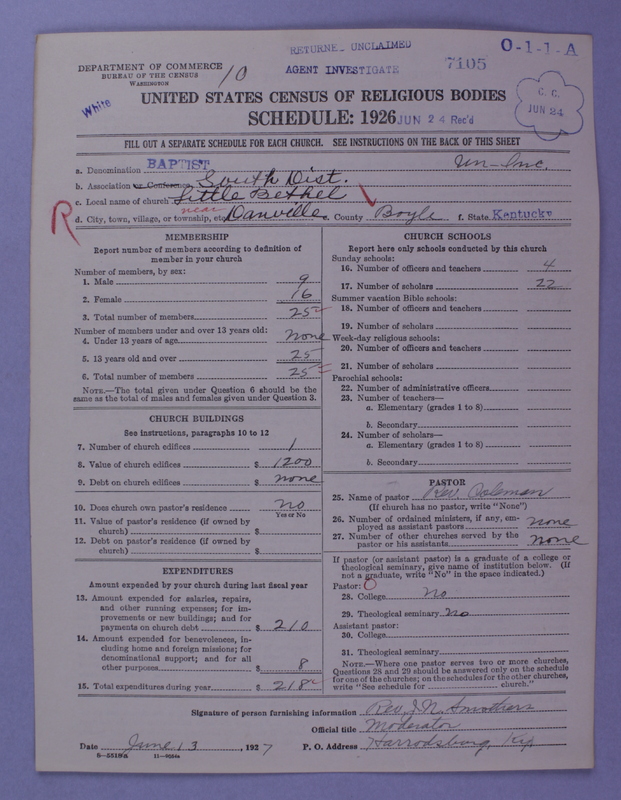 RETURNED UNCLAIMED
O-1-1-A
DEPARTMENT OF COMMERCE
BUREAU OF THE CENSUS
WASHINGTON
10
AGENT INVESTIGATE
7105
White
UNITED STATES CENSUS OF RELIGIOUS BODIES
SCHEDULE: 1926
JUN 24 Rec'd
C. C.
JUN 24
FILL OUT A SEPARATE SCHEDULE FOR EACH CHURCH. SEE INSTRUCTIONS ON THE BACK OF THIS SHEET
a. Denomination BAPTIST Un-Inc.
b. Association or Conference South Dist.
c. Local name of church Little Bethel
R d. City, town, village, or township, etc. near Danville e. County Boyle f. State Kentucky
MEMBERSHIP
Report number of members according to definition of
member in your church
Number of members, by sex:
1. Male 9
2. Female 16
3. Total number of members 25
Number of members under and over 13 years old:
4. Under 13 years of age none
5. 13 years old and over 25
6. Total number of members 25
NOTE.—The total given under Question 6 should be the
same as the total of males and females given under Question 3.
CHURCH BUILDINGS
See instructions, paragraphs 10 to 12
7. Number of church edifices 1
8. Value of church edifices $ 1200
9. Debt on church edifices $ none
10. Does church own pastor's residence no
Yes or No
11. Value of pastor's residence (if owned by
church) $
12. Debt on pastor's residence (if owned by
church) $
EXPENDITURES
Amount expended by your church during last fiscal year
13. Amount expended for salaries, repairs,
and other running expenses; for im-
provements or new buildings; and for
payments on church debt $ 210
14. Amount expended for benevolences, in-
cluding home and foreign missions; for
denominational support; and for all
other purposes 8
15. Total expenditures during year $ 218
CHURCH SCHOOLS
Report here only schools conducted by this church
Sunday schools:
16. Number of officers and teachers 4
17. Number of scholars 22
Summer vacation Bible schools:
18. Number of officers and teachers
19. Number of scholars
Week-day religious schools:
20. Number of officers and teachers
21. Number of scholars
Parochial schools:
22. Number of administrative officers
23. Number of teachers—
a. Elementary (grades 1 to 8)
b. Secondary
24. Number of scholars—
a. Elementary (grades 1 to 8)
b. Secondary
PASTOR
25. Name of pastor Rev. Coleman
(If church has no pastor, write "None")
26. Number of ordained ministers, if any, em-
ployed as assistant pastors none
27. Number of other churches served by the
pastor or his assistants none
If pastor (or assistant pastor) is a graduate of a college or
theological seminary, give name of institution below. (If
not a graduate, write "No" in the space indicated.)
Pastor: O
28. College No
29. Theological seminary no
Assistant pastor:
30. College
31. Theological seminary
NOTE.—Where one pastor serves two or more churches,
Questions 28 and 29 should be answered only on the schedule
for one of the churches; on the schedules for the other churches,
write "See schedule for church."
Signature of person furnishing information Rev. J. N. Smothers
Official title Moderator
Date June 13, 1927 P. O. Address Harrodsburg, Ky